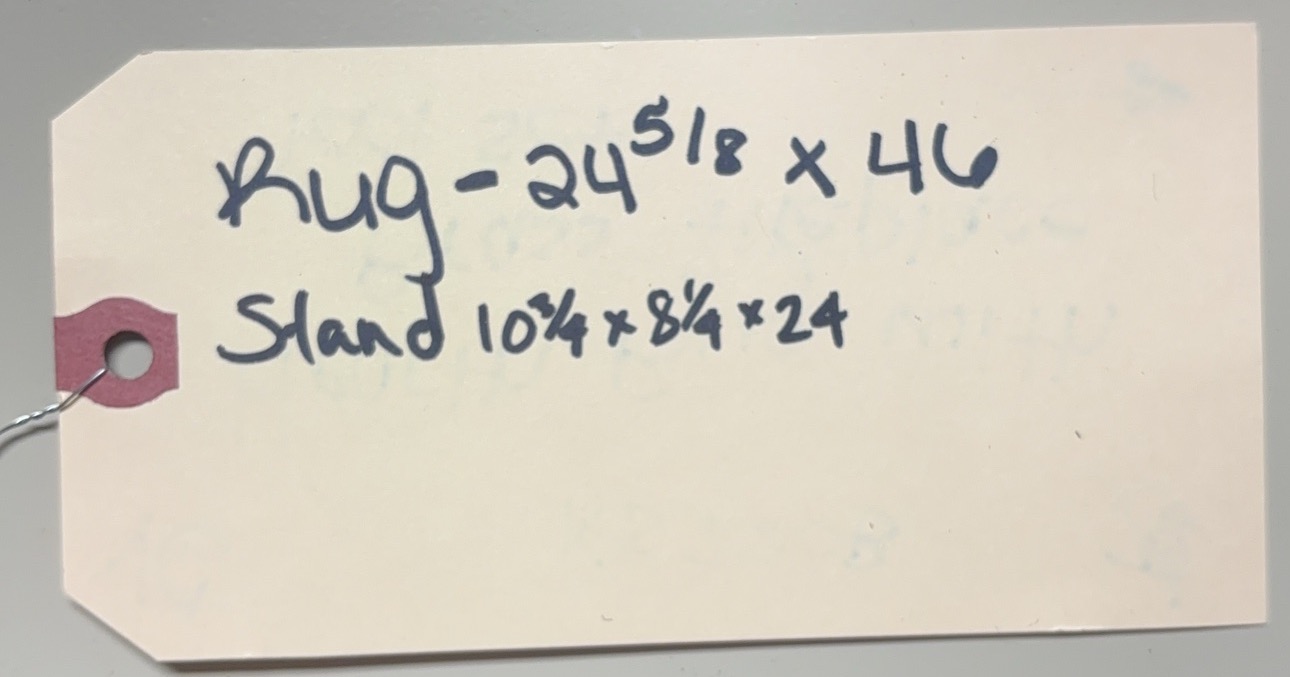 Rug - 24 5/8 x 46
Stand 10 3/4 x 8 1/4 x 24